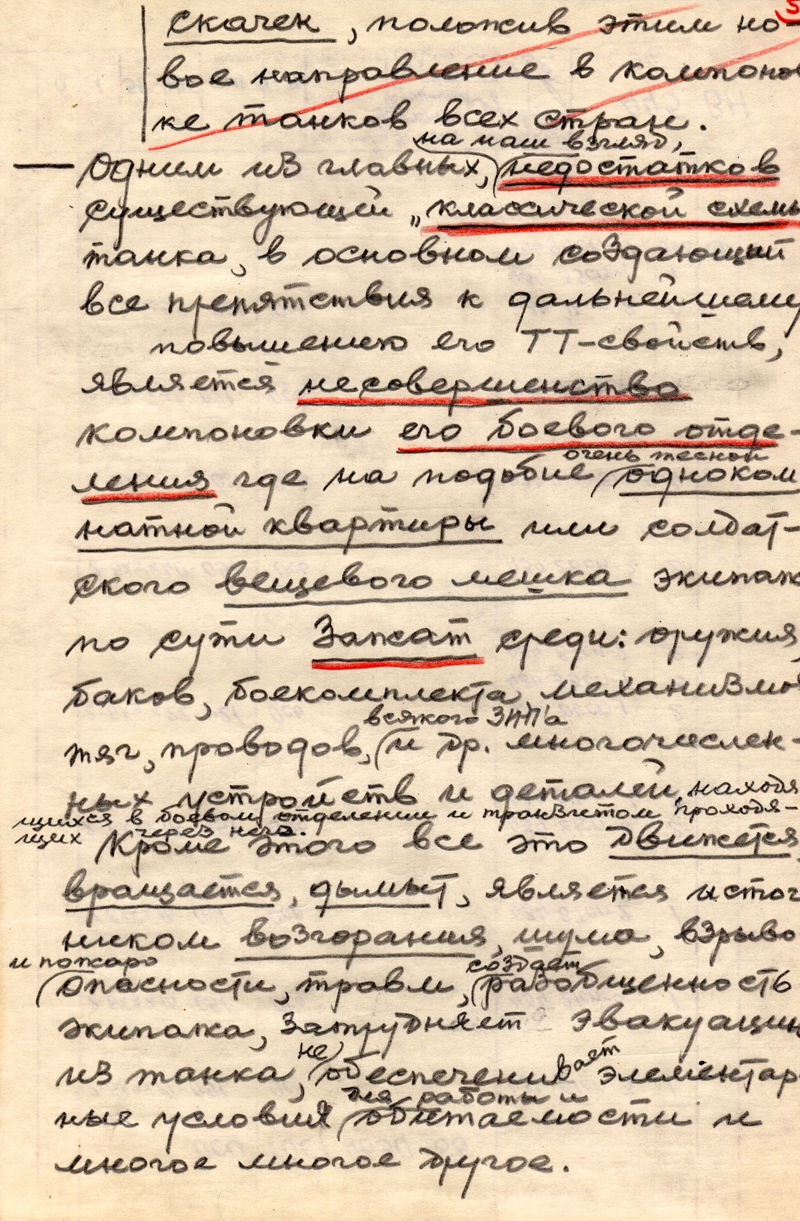 5
скачек, положив этим но-
вое направление в компонов
ке танков всех стран.
на наш взгляд,
— Одним из главных, недостатков
существующей „классической схемы
танка, в основном создающий
все препятствия к дальнейшему
повышению его ТТ-свойств,
является несовершенство
компоновки его боевого отде-
очень тесной
ления где на подобие одноком
натной квартиры или солдат-
ского вещевого мешка экипаж
по сути зажат среди: оружия,
баков, боекомплекта, механизмов
всякого ЗИП'а
тяг, проводов, и др. многочислен-
ных устройств и деталей, находя
щихся в боевом отделении и транзитом проходя-
щих через него.
Кроме этого все это движется,
вращается, дымит, является источ
ником возгорания, шума, взрыво
и пожаро создает
опасности, травм, разобщенность
экипажа, затрудняет эвакуацию
не вает
из танка, обеспечени элементар
для работы и
ные условия обитаемости и
многое многое другое.